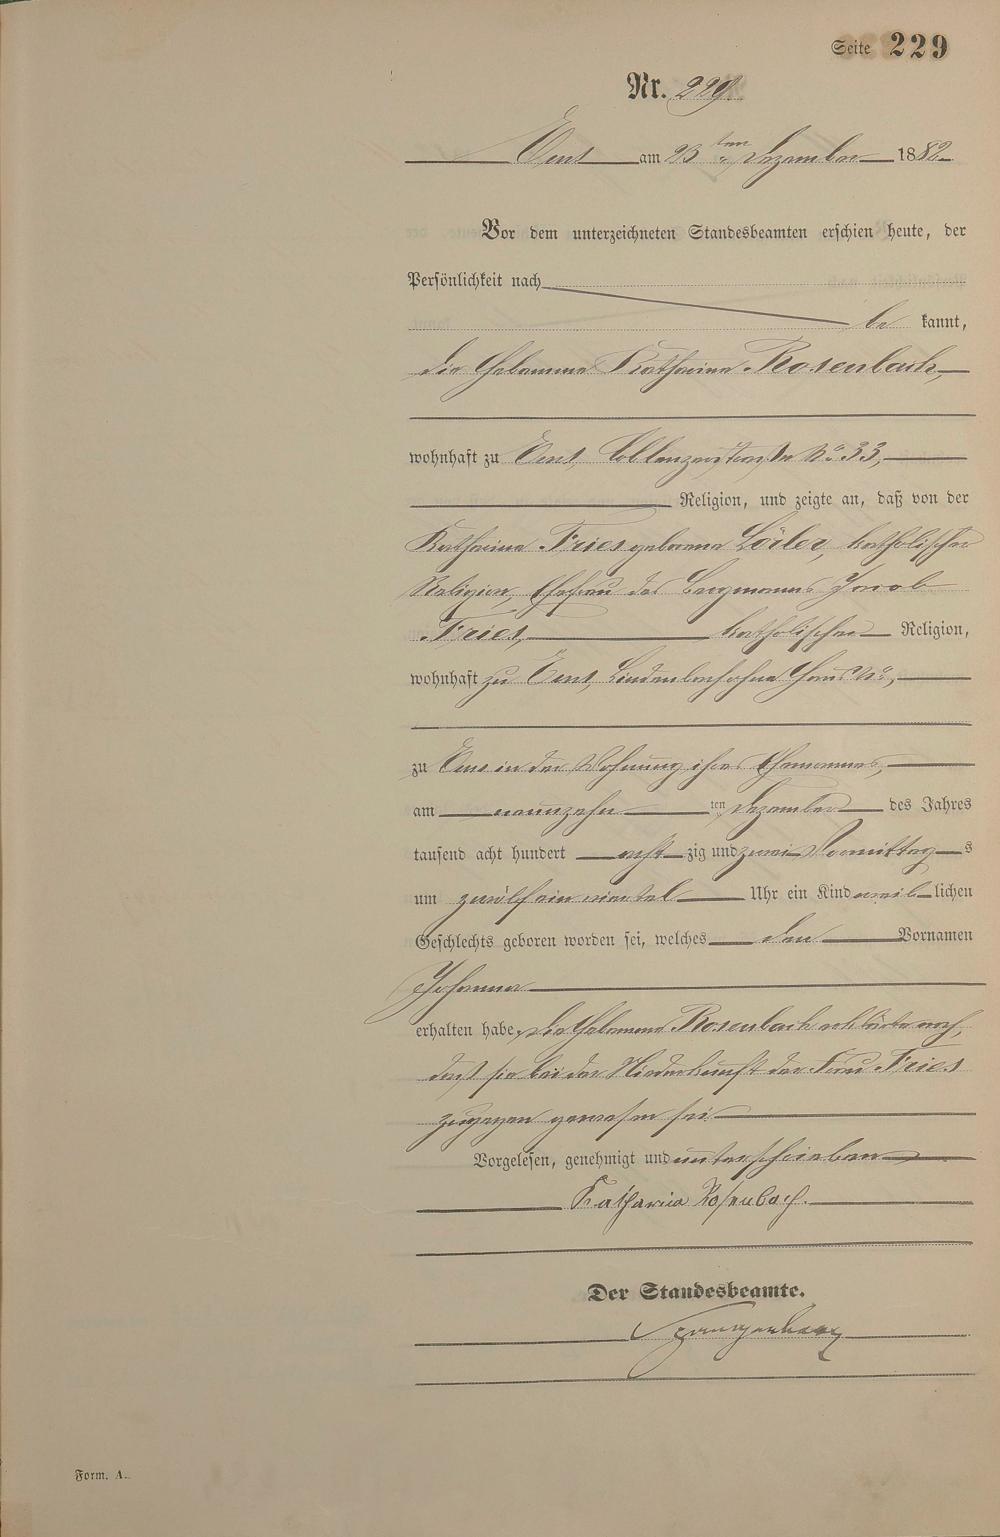 Seite 229
Nr. 229.
Ems am 23ten Dezember 1882
Vor dem unterzeichneten Standesbeamten erschien heute, der
Persönlichkeit nach
be kannt,
die Hebamme Katharina Rosenbach,
wohnhaft zu Ems, Coblenzerstraße No 33,
Religion, und zeigte an, daß von der
Katharina Fries geborene Löiler, katholischer
Religion, Ehefrau des Bergmanns Jacob
Fries, katholischer Religion,
wohnhaft zu Ems, Lindenbach ohne Haus No,
zu Ems in der Wohnung ihres Ehemannes,
am neunzehn ten Dezember des Jahres
tausend acht hundert acht zig und zwei Vormittag s
um zwölf ein viertel Uhr ein Kind weib lichen
Geschlechts geboren worden sei, welches den Vornamen
Johanna
erhalten habe. Die Hebamme Rosenbach erklärte noch,
daß sie bei der Niederkunft der Frau Fries
zugegen gewesen sei
Vorgelesen, genehmigt und unterschrieben
Katharina Rosenbach.
Der Standesbeamte.
Form. A.